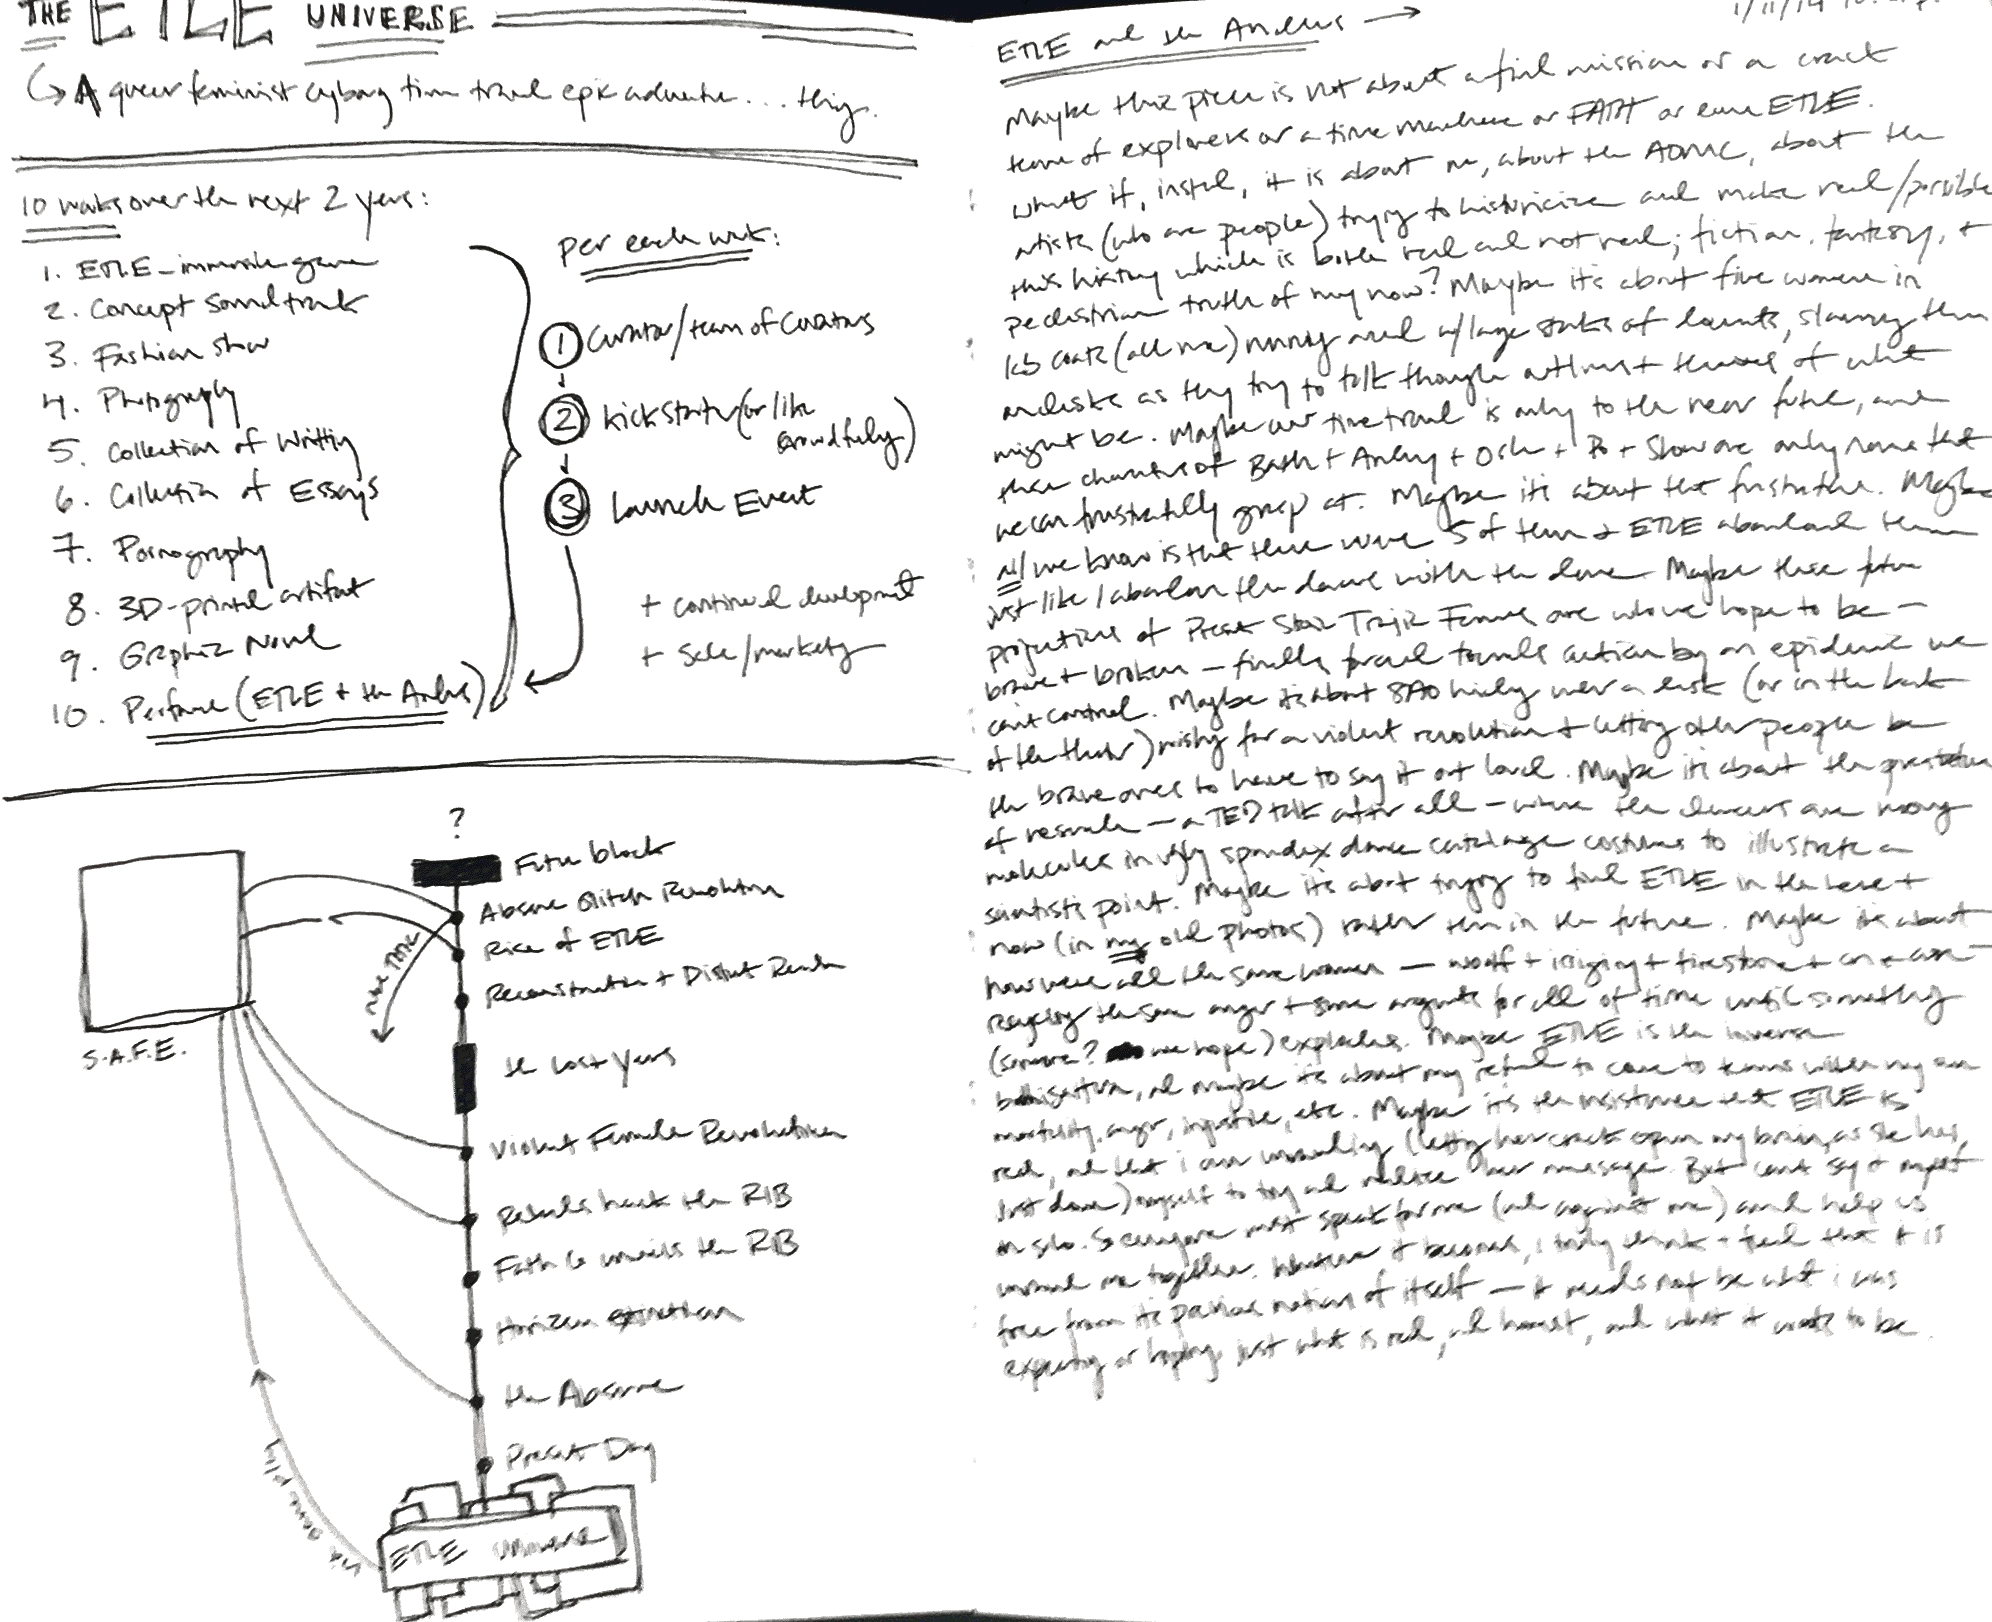 THE ETLE UNIVERSE
A queer feminist cyborg time travel epic adventure... thing.
10 works over the next 2 years:
1. ETLE - immersive game
2. Concept Soundtrack
3. Fashion show
4. Photography
5. Collection of Writing
6. Collection of Essays
7. Pornography
8. 3D-printed artifact
9. Graphic Novel
10. Performance (ETLE + the Anders)
per each work:
1 Curator/team of Curators
2 Kickstarter (or like
crowdfunding)
3 Launch Event
+ continued development
+ sale/marketing
?
Future block
Abscme Glitch Revolution
Rise of ETLE
Reconstruction + Distinct
the Lost Years
Violent Female Revolution
Rebels hack the RIB
Faith Co unveils the RIB
Horizon
the Abscme
Present Day
S.A.F.E.
ETLE Universe
ETLE and the Anders
1/11/14
Maybe this piece is not about a final mission or a crack
team of explorers or a time machine or FAITH or even ETLE.
What if, instead, it is about me, about the AOMC, about the
artists (who are people) trying to historicize and make real/possible
this history which is both real and not real; fiction, fantasy, +
pedestrian truth of my now? Maybe it's about five women in
lab coats (all me) running around w/large stacks of documents, slamming them
on desks as they try to talk through outlines + theories of what
might be. Maybe our time travel is only to the near future, and
these characters of Bath + Andrey + Osh + Bo + Show are only names that
we can frustratedly grasp at. Maybe it's about that frustration. Maybe
all we know is that there were 5 of them + ETLE abandoned them
just like I abandon the dance with the dance. Maybe these future
projections of Present Stair Tragic Females are who we hope to be —
brave + broken — finally forced towards action by an epidemic we
can't control. Maybe it's about SAO hiding under a desk (or in the back
of the theater) wishing for a violent revolution + letting other people be
the brave ones to have to say it out loud. Maybe it's about the presentation
of research — a TED talk after all — where the dancers are
molecules in ugly spandex dance catalogue costumes to illustrate a
scientist's point. Maybe it's about trying to find ETLE in the here +
now (in my old photos) rather than in the future. Maybe it's about
how we're all the same woman — woolf + irigaray + firestone + on + on —
Replaying the same anger + same arguments for all of time until something
(someone? we hope) explodes. Maybe ETLE is the inverse
and maybe it's about my refusal to come to terms with my own
mortality, anger, injustice, etc. Maybe it's the insistence that ETLE is
real, and that i am unraveling (letting her crack open my brain, as she has
just done) myself to try and realize her message. But can't say it myself
or solo. So everyone must speak for me (and against me) and help us
unravel me together. Whatever it becomes, i truly think + feel that it is
free from its previous notion of itself — it needs not be what i was
expecting or hoping, just what is real, and honest, and what it wants to be.